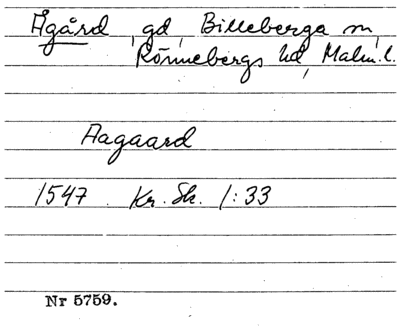 Ågård, gd, Billeberga sn,
Rönnebergs hd, Malm. l.
Aagaard
1547. Kr. Sk. 1:33
Nr 5759.